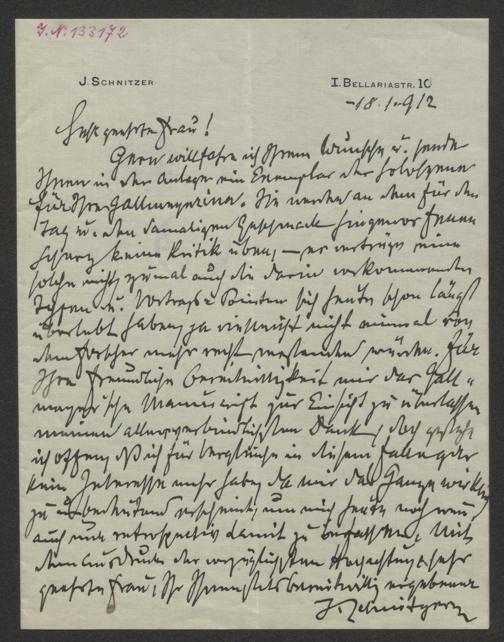 J. N. 133172
J. SCHNITZER
I. BELLARIASTR. 10
-18.1.912
Sehr geehrte Frau!
Gern willfahre ich Ihrem Wunsche u. sende
Ihnen in der Anlage ein Exemplar der Soloscene
für Frau Gallmeyer. Sie werden an dem für den
Tag u. den damaligen Geschmack hingeworfenen
Scherz keine Kritik üben, – er verträgt eine
solche nicht, zumal auch die darin vorkommenden
Typen u. Vortrags Pointen sich heute schon längst
überlebt haben, ja vielleicht nicht einmal von
dem Forscher mehr recht verstanden würden. Für
Ihre freundliche Bereitwilligkeit mir das Gall-
meyer'sche Manuscript zur Einsicht zu überlassen
meinen allerverbindlichsten Dank, doch gestehe
ich offen, daß ich für Vergleiche in diesem Falle gar
kein Interesse mehr habe, da mir das Ganze wirklich
zu unbedeutend erscheint, um mich heute noch, wenn
auch nur retrospectiv damit zu befassen. Mit
dem Ausdruck der vorzüglichsten Hochachtung, sehr
geehrte Frau, Ihr Ihnen stets bereitwillig ergebener
J. Schnitzer